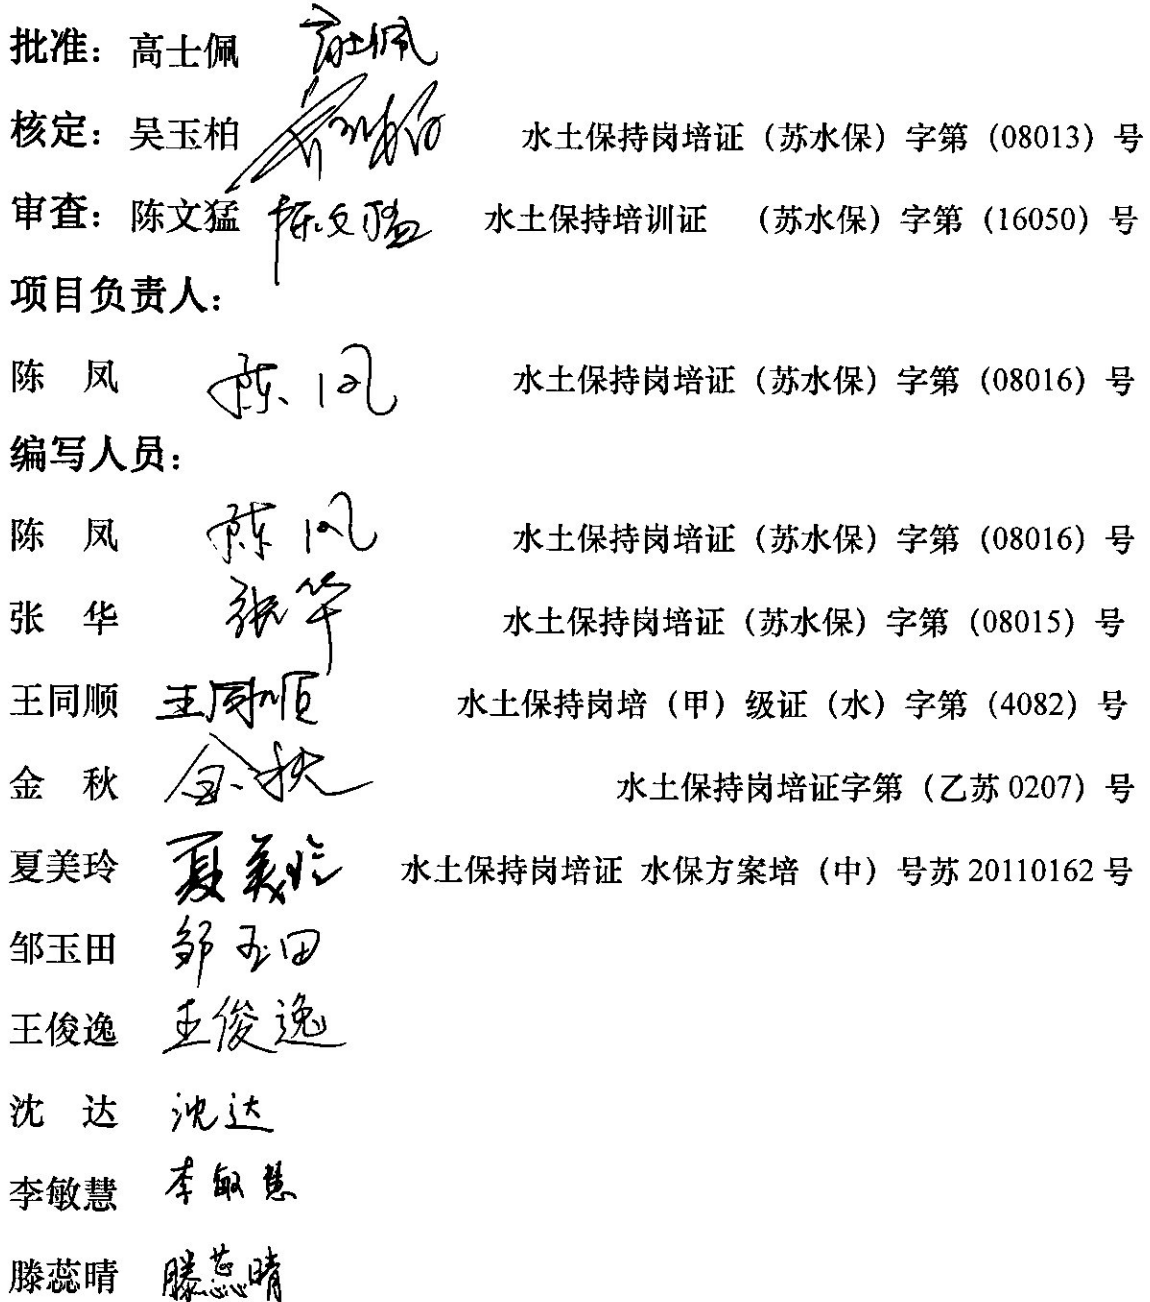 批准：高士佩 高士佩
核定：吴玉柏 水土保持岗培证（苏水保）字第（08013）号
审查：陈文猛 陈文猛 水土保持培训证 （苏水保）字第（16050）号
项目负责人：
陈 凤 陈凤 水土保持岗培证（苏水保）字第（08016）号
编写人员：
陈 凤 陈凤 水土保持岗培证（苏水保）字第（08016）号
张 华 张华 水土保持岗培证（苏水保）字第（08015）号
王同顺 王同顺 水土保持岗培（甲）级证（水）字第（4082）号
金 秋 金秋 水土保持岗培证字第（乙苏 0207）号
夏美玲 夏美玲 水土保持岗培证 水保方案培（中）号苏 20110162 号
邹玉田 邹玉田
王俊逸 王俊逸
沈 达 沈达
李敏慧 李敏慧
滕蕊晴 滕蕊晴